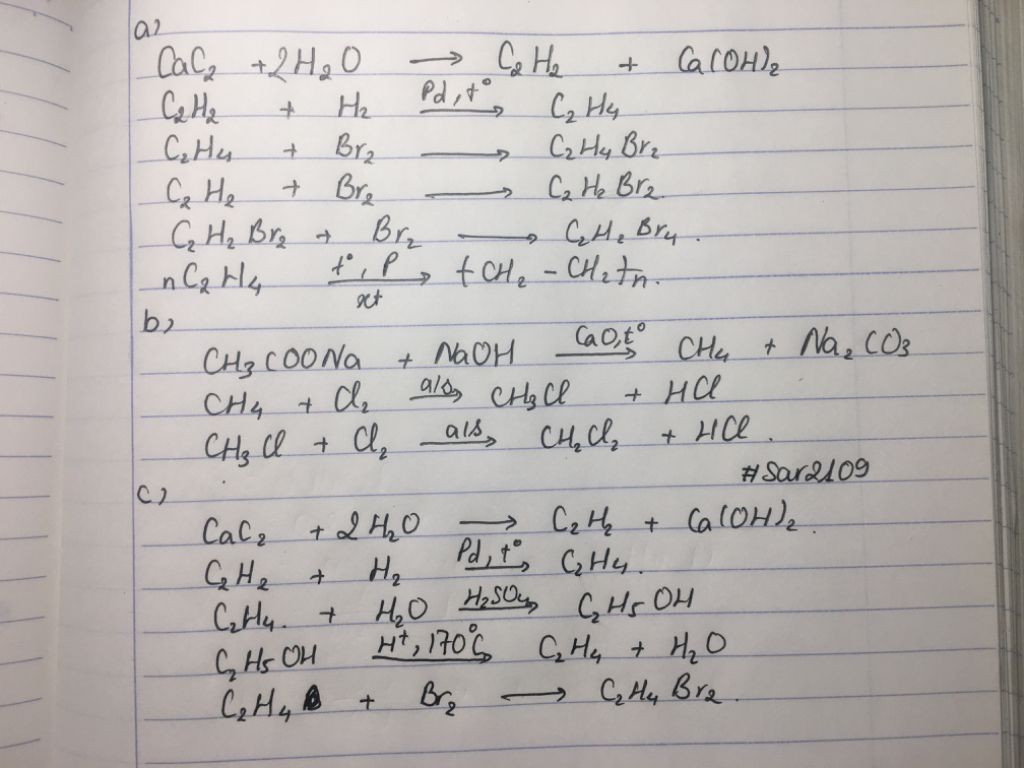 a)
CaC₂ + 2H₂O → C₂H₂ + Ca(OH)₂
C₂H₂ + H₂ —Pd, t°→ C₂H₄
C₂H₄ + Br₂ → C₂H₄Br₂
C₂H₂ + Br₂ → C₂H₂Br₂.
C₂H₂Br₂ + Br₂ → C₂H₂Br₄.
nC₂H₄ —t°, P / xt→ (CH₂ – CH₂)n.
b)
CH₃COONa + NaOH —CaO, t°→ CH₄ + Na₂CO₃
CH₄ + Cl₂ —a/s→ CH₃Cl + HCl
CH₃Cl + Cl₂ —a/s→ CH₂Cl₂ + HCl.
#Sar2109
c)
CaC₂ + 2H₂O → C₂H₂ + Ca(OH)₂.
C₂H₂ + H₂ —Pd, t°→ C₂H₄.
C₂H₄. + H₂O —H₂SO₄→ C₂H₅OH
C₂H₅OH —H⁺, 170°C→ C₂H₄ + H₂O
C₂H₄ + Br₂ → C₂H₄Br₂.